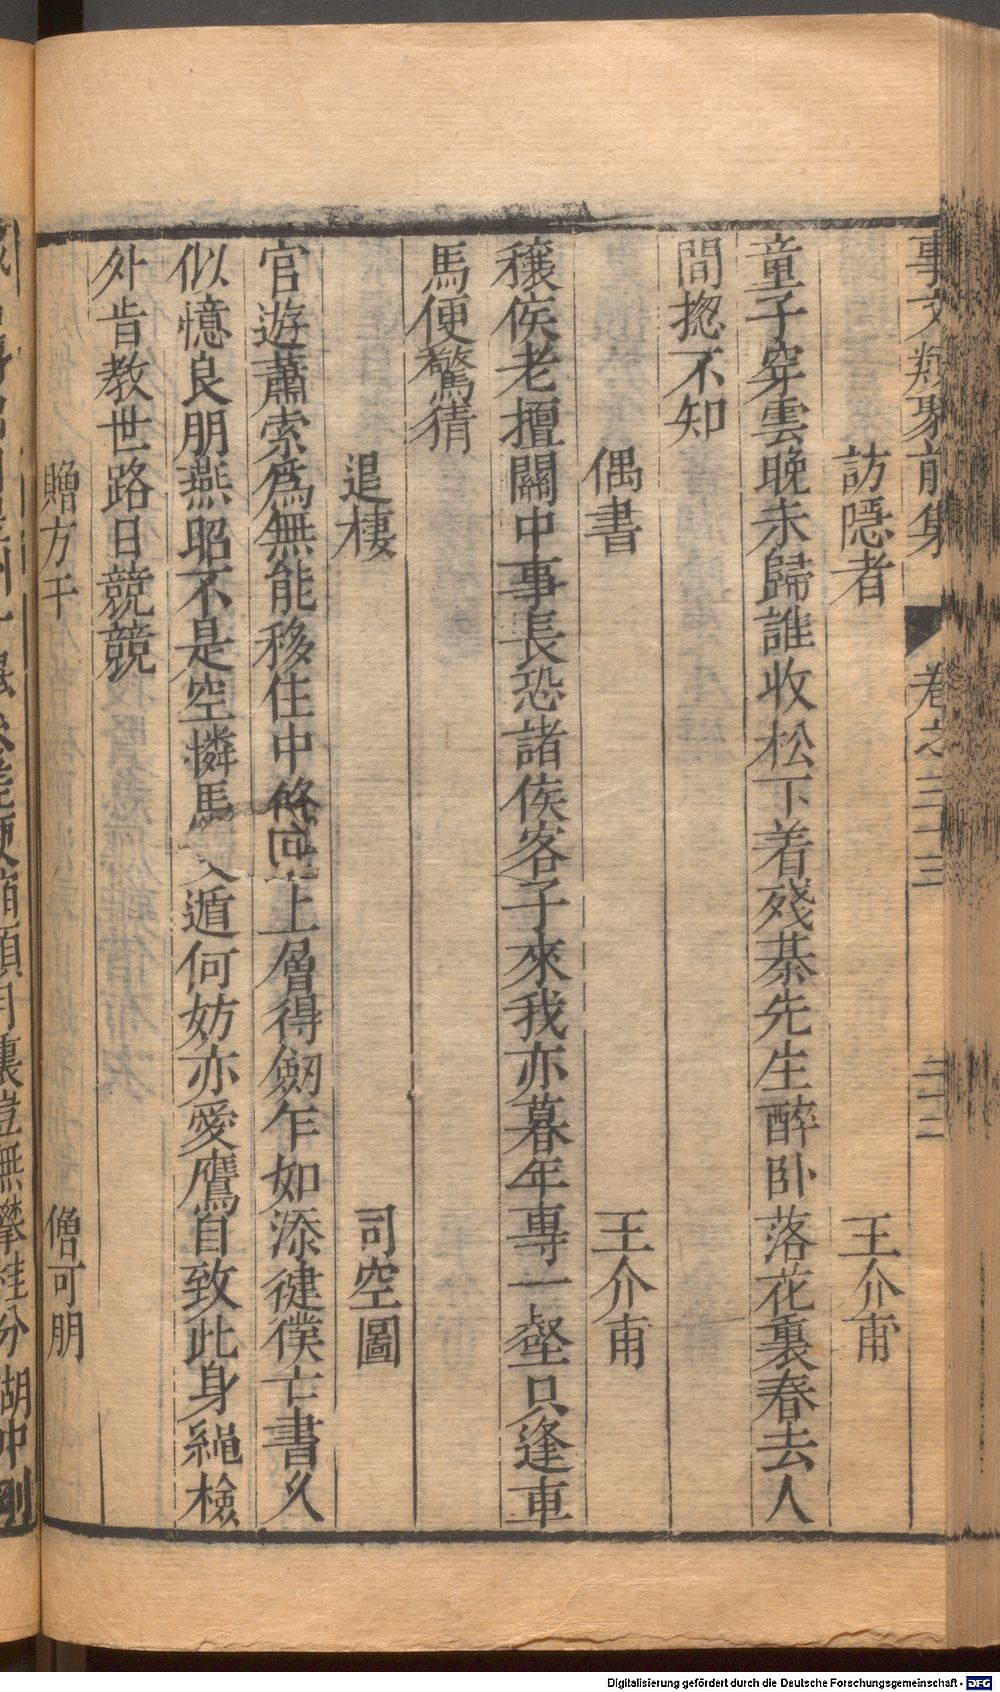 事文類聚前集 卷之三十三 二二
訪隱者 王介甫
童子穿雲晚未歸誰收松下着殘棊先生醉卧落花裏春去人
間揔不知
偶書 王介甫
穰侯老擅關中事長恐諸侯客子來我亦暮年專一壑只逢車
馬便驚猜
退棲 司空圖
官遊蕭索爲無能移住中條向上層得劒乍如添健僕亡書久
似憶良朋燕昭不是空憐馬 遁何妨亦愛鷹自致此身繩檢
外肯教世路日競競
贈方干 僧可朋
月裏豈無攀桂分湖中刪
Digitalisierung gefördert durch die Deutsche Forschungsgemeinschaft - DFG